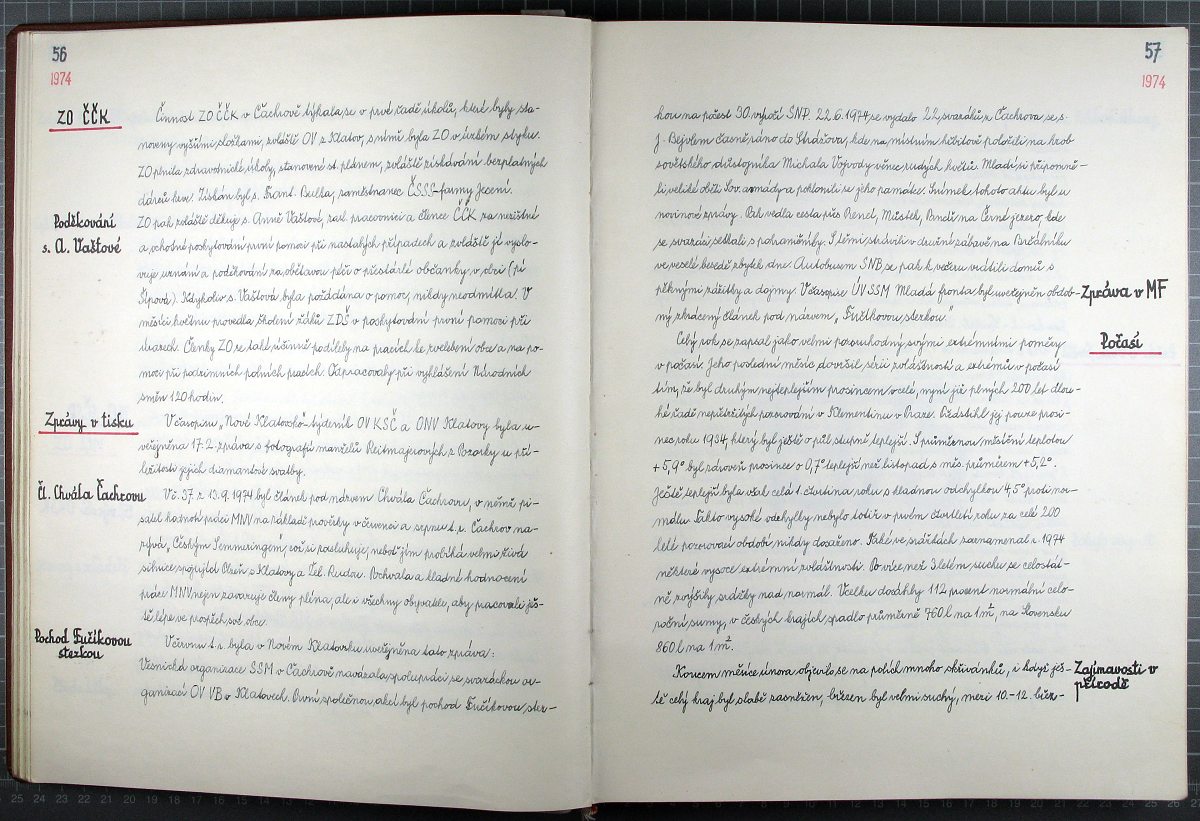 56
1974
ZO ČČK
Činnost ZO ČČK v Čachrově týkala se v prvé řadě úkolů, které byly sta-
noveny vyššími složkami, zvláště OV v Klatov., s nímž byla ZO v úzkém styku.
ZO plnila zdravotnické úkoly, stanovené st. plánem, zvláště získávání bezplatných
dárců krve. Získán byl s. Frant. Bulka, zaměstnanec ČSSS-farmy Jesení.
Poděkování
s. A. Vaštové
ZO pak zvláště děkuje s. Anně Vaštové, zdrav. pracovnici a člence ČČK za nezištné
a ochotné poskytování první pomoci při nastalých případech a zvláště jí vyslo-
vuje uznání a poděkování za obětavou péči o přestárlé občanky v obci (pí
Šípová). Kdykoliv s. Vaštová byla požádána o pomoc, nikdy neodmítla. V
měsíci květnu provedla školení žáků ZDŠ v poskytování první pomoci při
úrazech. Členky ZO se také účinně podílely na pracích ke zvelebení obce a na po-
moci při podzimních polních pracích. Odpracovaly při vyhlášení Národních
směn 120 hodin.
Zprávy v tisku
V časopisu „Nové Klatovsko"-týdeník OV KSČ a ONV Klatovy byla u-
veřejněna 17.2. zpráva s fotografií manželů Reitmajerových z Kozarky u pří-
ležitosti jejich diamantové svatby.
Čl. Chvála Čachrovu
V č. 37 z 13.9.1974 byl článek pod názvem Chvála Čachrovu, v němž pi-
satel hodnotí práci MNV na základě prověrky v červenci a srpnu t.r. Čachrov na-
zývá „Českým Semmeringem", což si zasluhuje, neboť jím probíhá velmi živá
silnice spojující Plzeň s Klatovy a Žel. Rudou. Pochvala a kladné hodnocení
práce MNV nejen zavazuje členy pléna, ale i všechny obyvatele, aby pracovali ješ-
tě lépe ve prospěch své obce.
Pochod Fučíkovou
stezkou
V červnu t.r. byla v Novém Klatovsku uveřejněna tato zpráva:
Vesnická organizace SSM v Čachrově navázala spolupráci se svazáckou or-
ganizací OV VB v Klatovech. První společnou akcí byl pochod Fučíkovou stez-
57
1974
kou na počest 30. výročí SNP. 22.6.1974 se vydalo 22 svazáků z Čachrova se s.
J. Bejvlem časně ráno do Strážova, kde na místním hřbitově položili na hrob
sovětského důstojníka Michala Vojvody věnec rudých květů. Mladí si připomně-
li veliké oběti Sov. armády a poklonili se jeho památce. Snímek tohoto aktu byl u
novinové zprávy. Pak vedla cesta přes Renci, Můstek, Pandu na Černé jezero, kde
se svazáci setkali s pohraničníky. S těmi strávili v družné zábavě na Brčálníku
ve veselé besedě zbytek dne. Autobusem SNB se pak k večeru vrátili domů s
pěknými zážitky a dojmy. V časopise ÚV SSM Mladá fronta byl uveřejněn obdob-
Zpráva v MF
ný zkrácený článek pod názvem „Fučíkovou stezkou."
Počasí
Celý rok se zapsal jako velmi pozoruhodný svými extrémními poměry
v počasí. Jeho poslední měsíc dovršil sérii zvláštností a extrémů v počasí
tím, že byl druhým nejteplejším prosincem v celé, nyní již plných 200 let dlou-
hé řadě nepřetržitých pozorování v Klementinu v Praze. Předstihl jej pouze prosi-
nec roku 1934, který byl ještě o půl stupně teplejší. S průměrnou měsíční teplotou
+5,9° byl zároveň prosinec o 0,7° teplejší než listopad s měs. průměrem +5,2°.
Ještě teplejší byla však celá 1. čtvrtina roku s kladnou odchylkou 4,5° proti nor-
málu. Takto vysoké odchylky nebylo totiž v prvém čtvrtletí roku za celé 200
leté pozorovací období nikdy dosaženo. Také ve srážkách zaznamenal r. 1974
některé vysoce extrémní zvláštnosti. Po více než 3 letém suchu se celostát-
ně zvýšily srážky nad normál. Vcelku dosáhly 112 procent normální celo-
roční sumy, v českých krajích spadlo průměrně 760 l na 1 m², na Slovensku
860 l na 1 m².
Zajímavosti v
přírodě
Koncem měsíce února objevilo se na polích mnoho skřivánků, i když ješ-
tě celý kraj byl slabě zasněžen, březen byl velmi suchý, mezi 10.-12. břez-